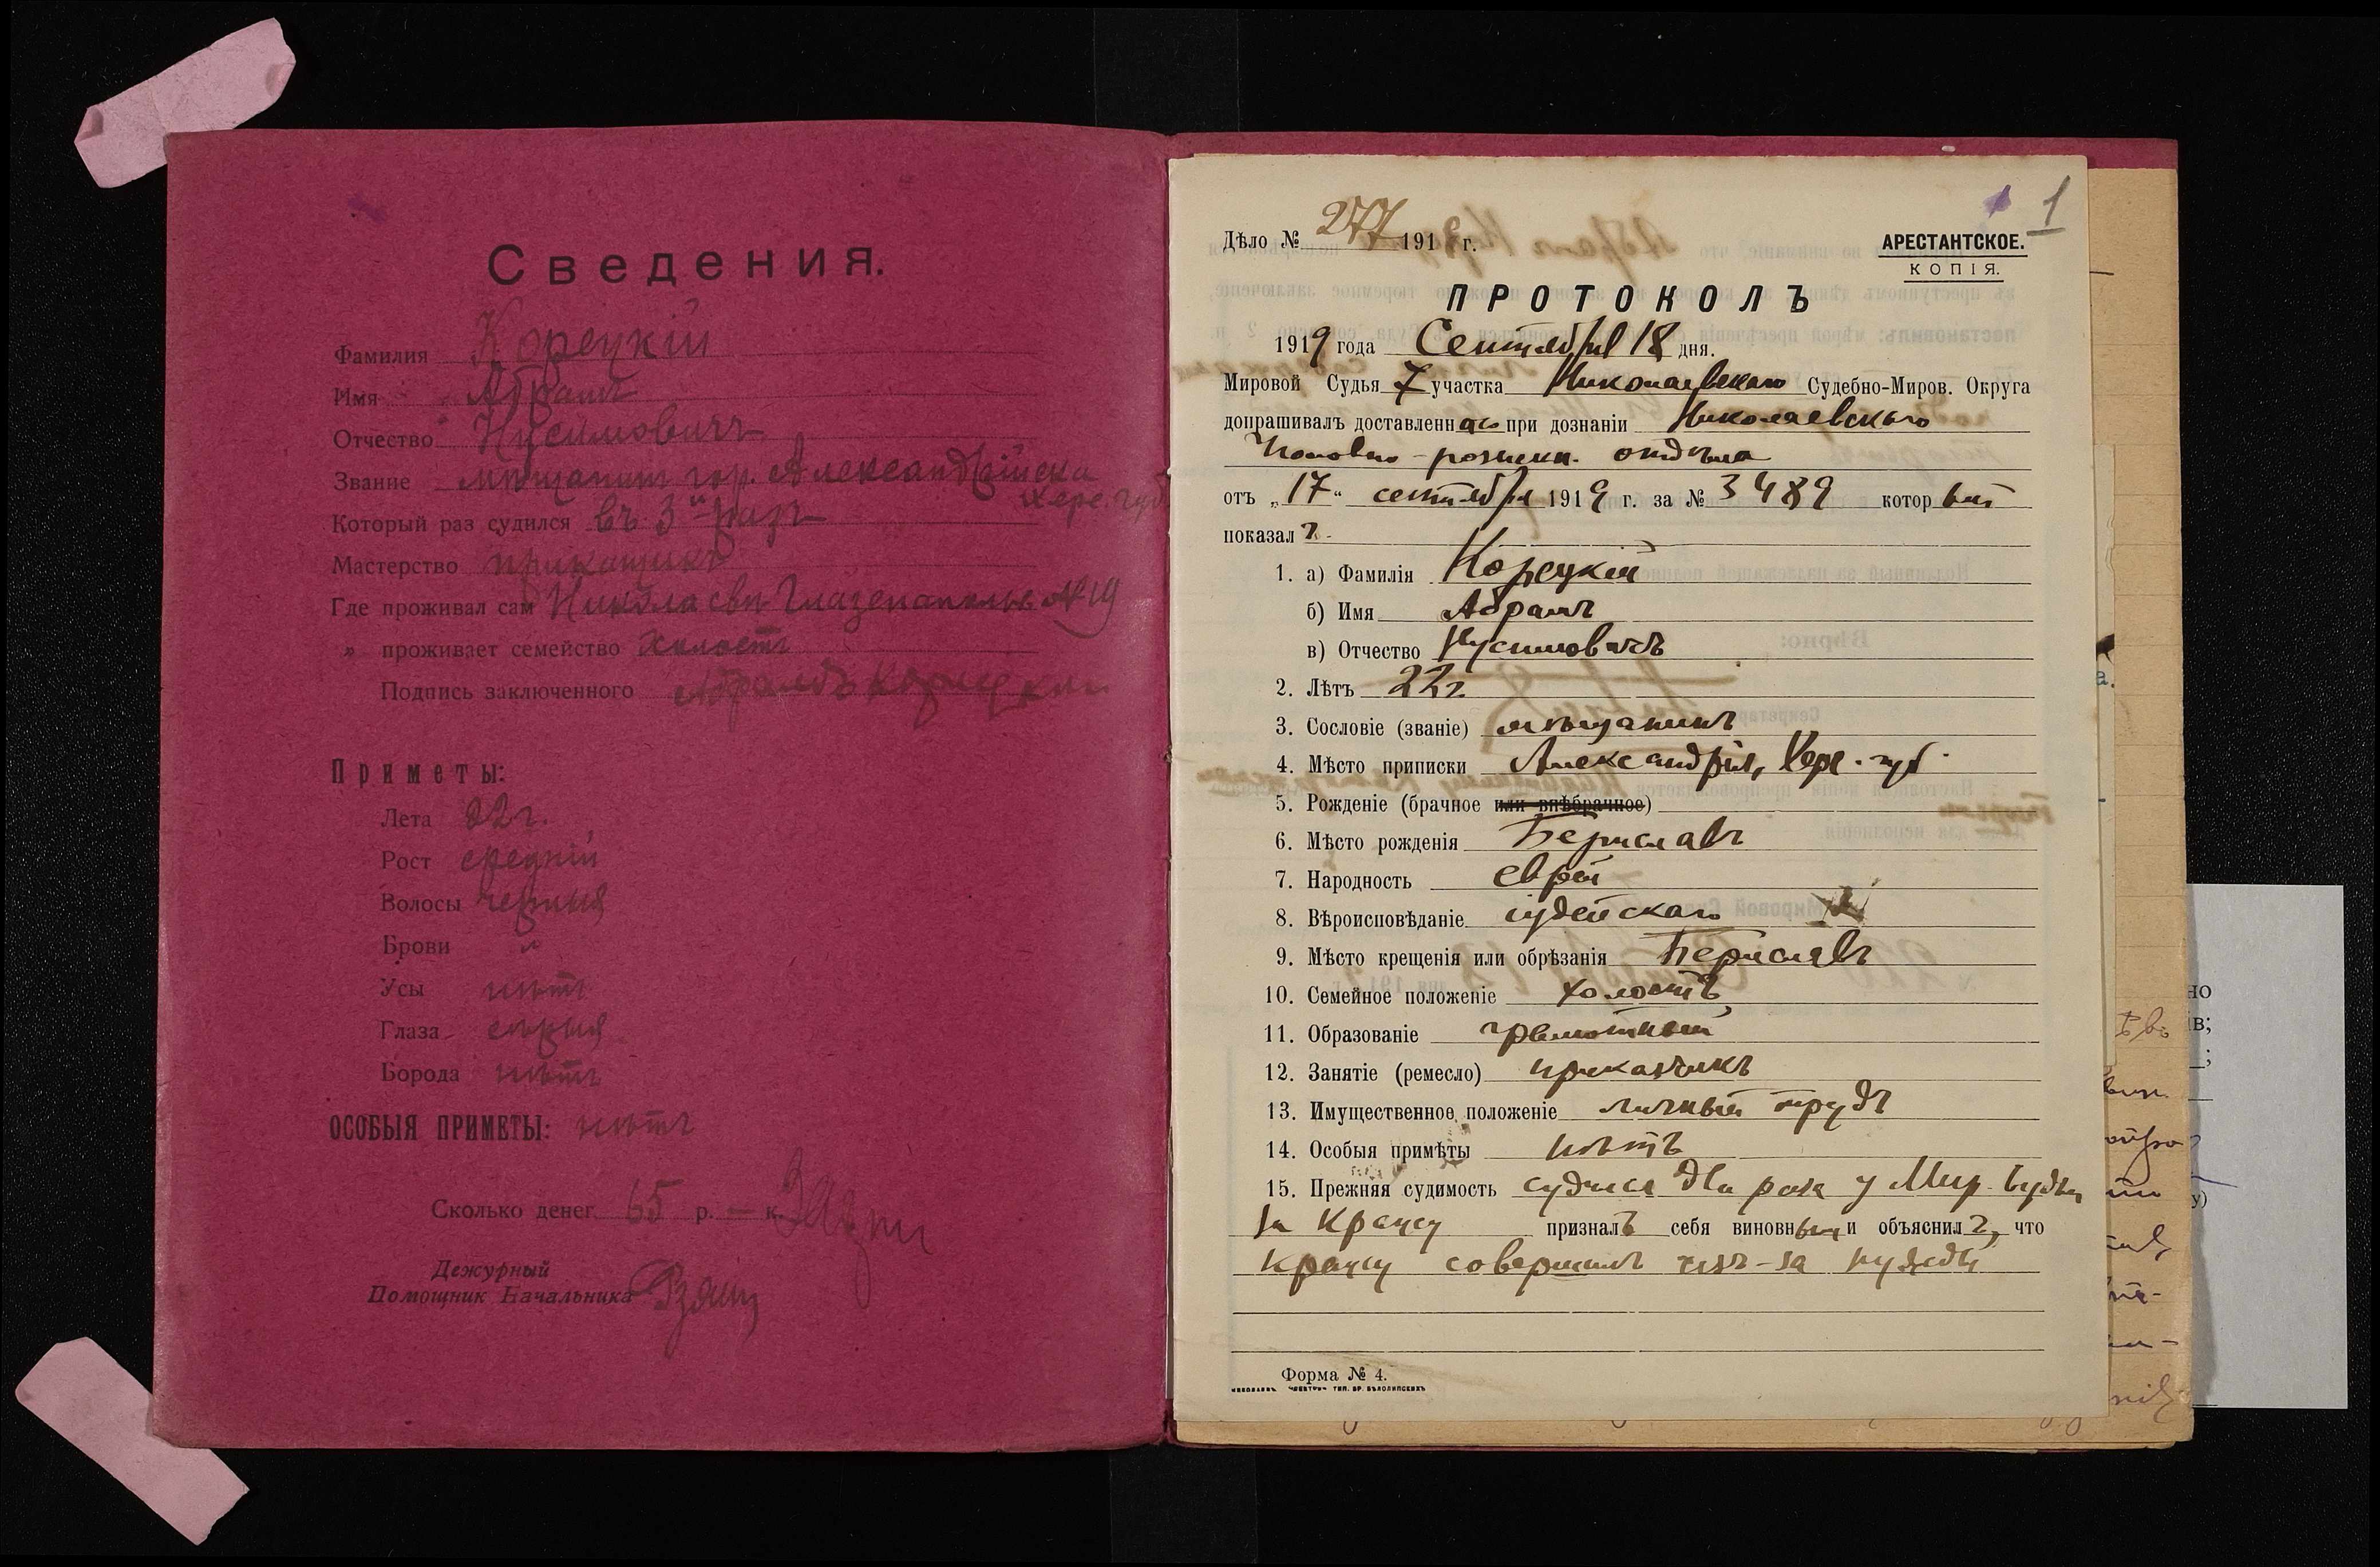 Сведения.
Фамилия Корецкій
Имя Абрамъ
Отчество Нусимовичъ
Звание мѣщанинъ гор. Александрійска
Хере. губ.
Который раз судился въ 3й разъ
Мастерство прикащикъ
Где проживал сам Николаевъ Глазенапомье № 19
„ проживает семейство холостъ
Подпись заключенного Абрамъ Корецкий
Приметы:
Лета 22 г.
Рост средній
Волосы черныя
Брови „
Усы нѣтъ
Глаза сѣрыя
Борода нѣтъ
ОСОБЫЯ ПРИМЕТЫ: нѣтъ
Сколько денег 65 р. — к.
Дежурный
Помощник Начальника
1
Дѣло № 277 1919 г.
АРЕСТАНТСКОЕ.
КОПІЯ.
ПРОТОКОЛЪ
1919 года Сентября 18 дня.
Мировой Судья 7 участка Николаевскаго Судебно-Миров. Округа
допрашивалъ доставленнаго при дознаніи Николаевскаго
розыскн. отдѣла
отъ „17“ сентября 1919 г. за № 3489 который
показалъ
1. а) Фамилія Корецкій
б) Имя Абрамъ
в) Отчество Нусимовичъ
2. Лѣтъ 22 г.
3. Сословіе (званіе) мѣщанинъ
4. Мѣсто приписки Александрія, Хере. губ.
5. Рожденіе (брачное или внѣбрачное)
6. Мѣсто рожденія Бериславъ
7. Народность еврей
8. Вѣроисповѣданіе іудейскаго
9. Мѣсто крещенія или обрѣзанія Бериславъ
10. Семейное положеніе холостъ
11. Образованіе грамотный
12. Занятіе (ремесло) приказчикъ
13. Имущественное положеніе личный трудъ
14. Особыя примѣты нѣтъ
15. Прежняя судимость судился два раза у Мир. Судьи
за кражу призналъ себя виновнымъ и объяснилъ, что
кражу совершилъ изъ-за нужды
Форма № 4.